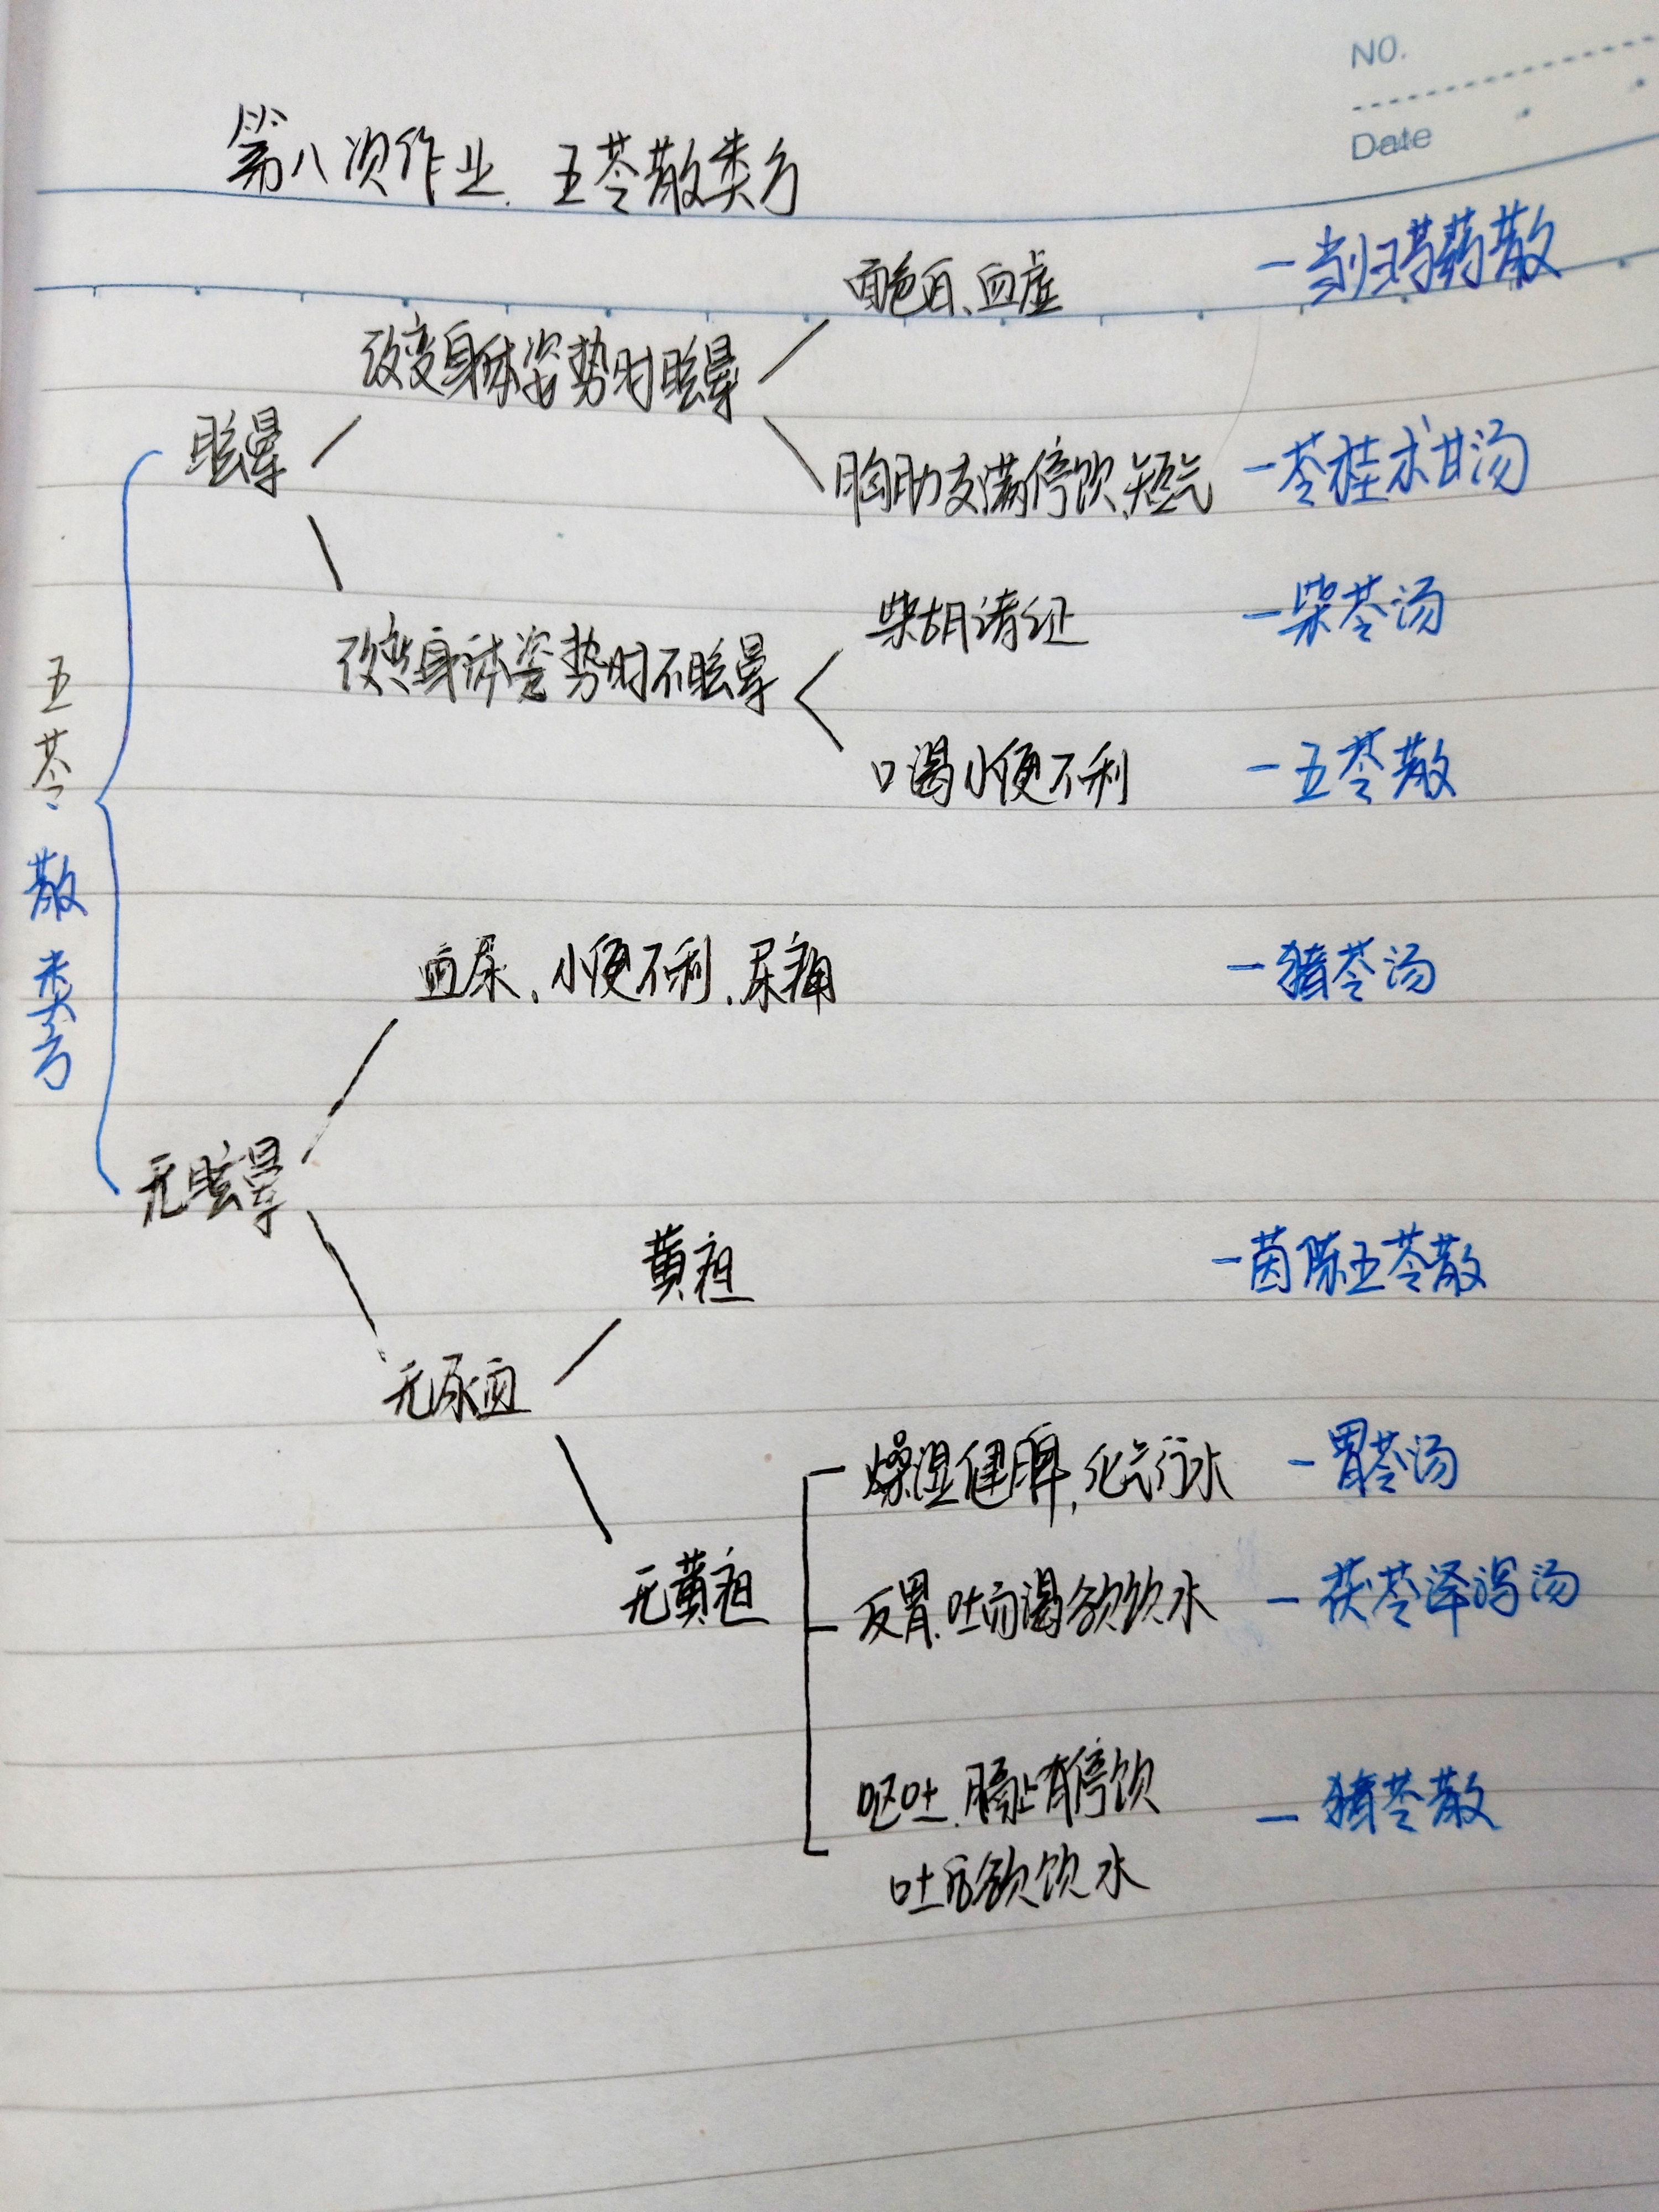 NO.
Date
第八次作业. 五苓散类方
面色白、血虚 — 当归芍药散
改变身体姿势时眩晕
眩晕
胸胁支满停饮、短气 — 苓桂术甘汤
柴胡诸证 — 柴苓汤
改变身体姿势时不眩晕
口渴小便不利 — 五苓散
五苓散类方
血尿、小便不利、尿痛 — 猪苓汤
无眩晕
黄疸 — 茵陈五苓散
无尿血
燥湿健脾,化气行水 — 胃苓汤
无黄疸
反胃.吐而渴欲饮水 — 茯苓泽泻汤
呕吐.膈上有停饮 — 猪苓散
吐后欲饮水